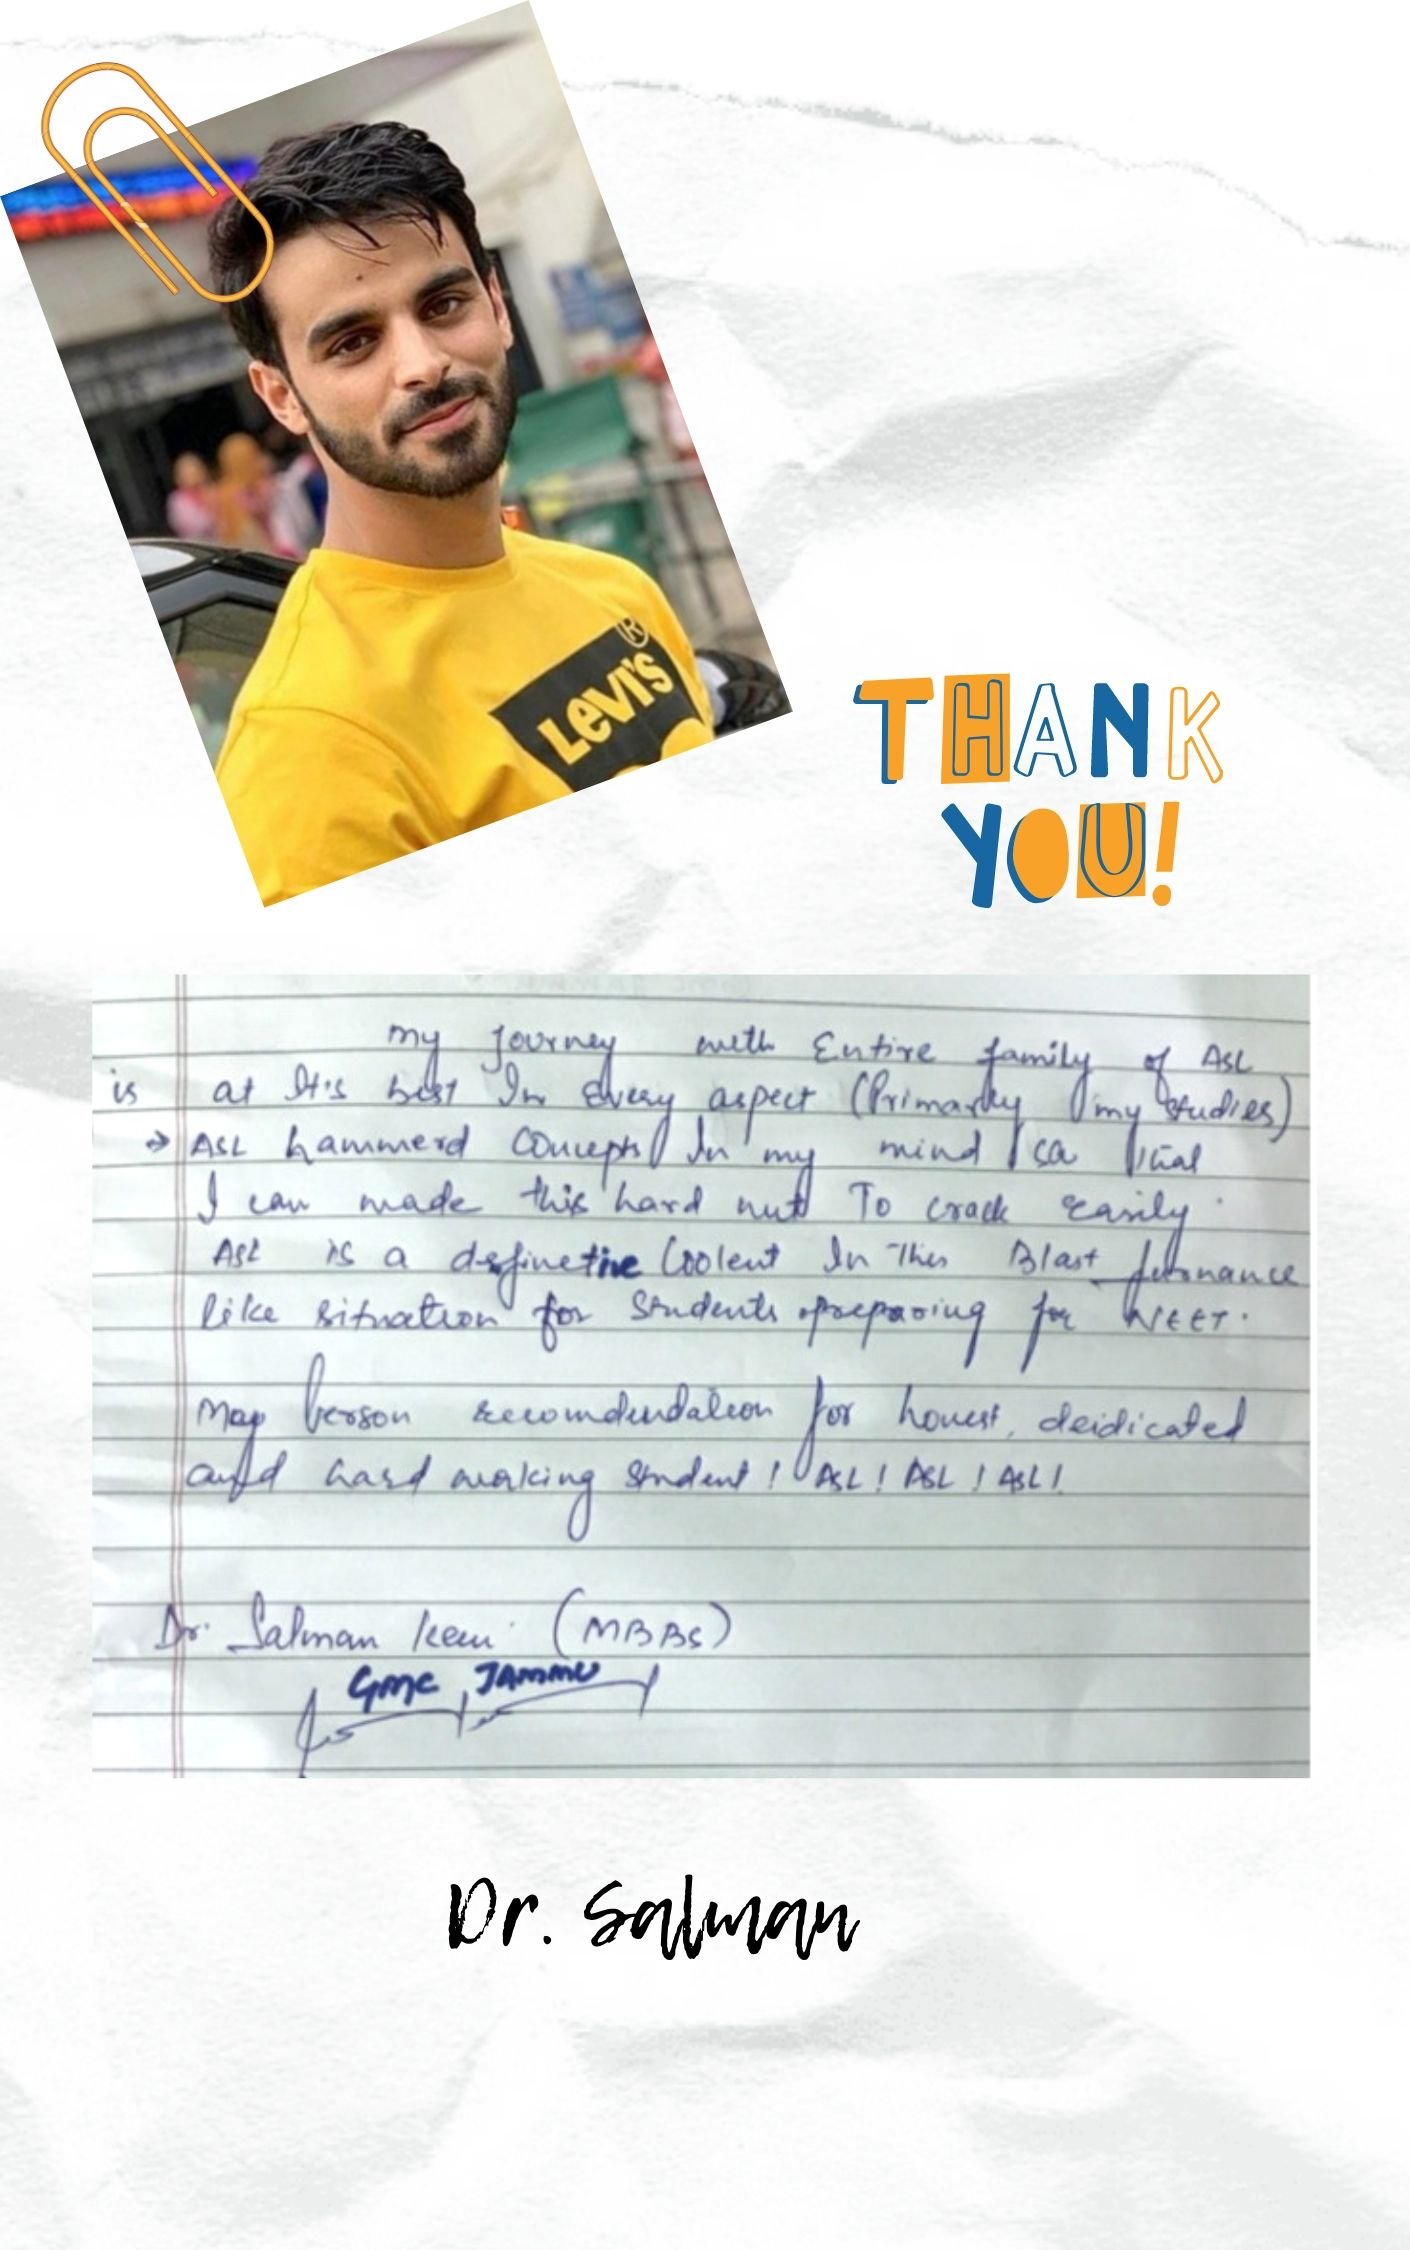 LEVI'S ®
THANK
YOU!
My Journey with Entire family of ASL
is at It's best In Every aspect (Primarly my studies)
→ ASL hammerd Concepts In my mind so that
I can made this hard nut To crack easily.
ASL is a definetive Coolent In This Blast furnance
like situation for Students preparing for NEET.
May person recomdendation for honest, deidicated
and hard working student! ASL! ASL! ASL!
Dr. Salman (MBBS)
GMC JAMMU
Dr. Salman